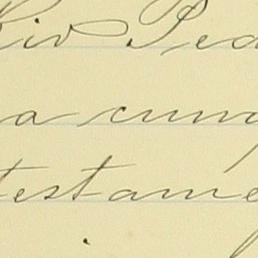 Riv. Ped
a cump
testame